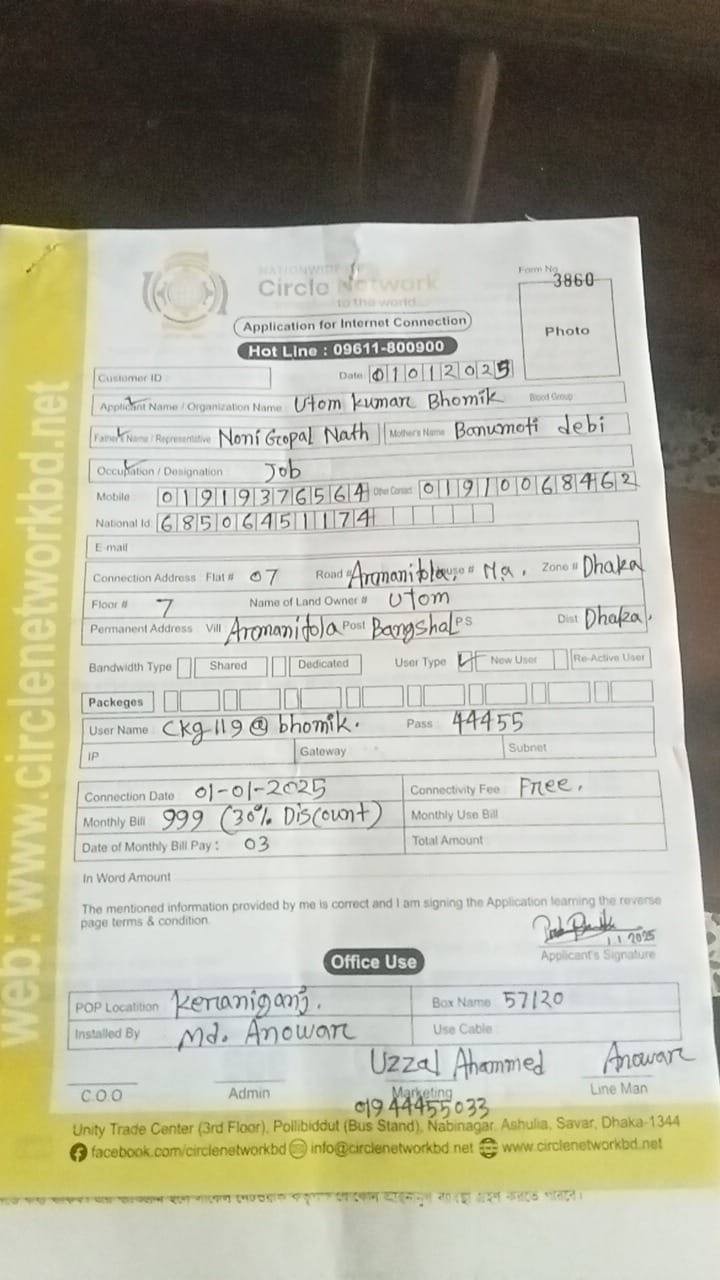 web: www.circlenetworkbd.net
NATIONWIDE
Circle Network
to the world...
Form No
3860
Application for Internet Connection
Photo
Hot Line : 09611-800900
Customer ID :
Date 01012025
Applicant Name / Organization Name Utom kumar Bhomik Blood Group
Father's Name / Representative Noni Gopal Nath Mother's Name Banumoti debi
Occupation / Designation Job
Mobile 01919376564 Other Contact 01910068462
National Id 68506451174
E-mail
Connection Address Flat # 07 Road # Armanitola, House # Na. Zone # Dhaka
Floor # 7 Name of Land Owner # Utom
Permanent Address Vill Aromanitola Post Bangshal PS Dist Dhaka.
Bandwidth Type Shared Dedicated User Type New User Re-Active User
Packeges
User Name : Ckg119@bhomik. Pass : 44455
IP Gateway Subnet
Connection Date 01-01-2025 Connectivity Fee Free.
Monthly Bill 999 (30% Discount) Monthly Use Bill
Date of Monthly Bill Pay : 03 Total Amount
In Word Amount
The mentioned information provided by me is correct and I am signing the Application learning the reverse
page terms & condition.
1.1.2025
Applicant's Signature
Office Use
POP Locatition Keraniganj. Box Name 57120
Installed By Md. Anowar Use Cable
Uzzal Ahammed Anowar
C.O.O Admin Marketing Line Man
01944455033
Unity Trade Center (3rd Floor), Pollibiddut (Bus Stand), Nabinagar, Ashulia, Savar, Dhaka-1344
facebook.com/circlenetworkbd info@circlenetworkbd.net www.circlenetworkbd.net